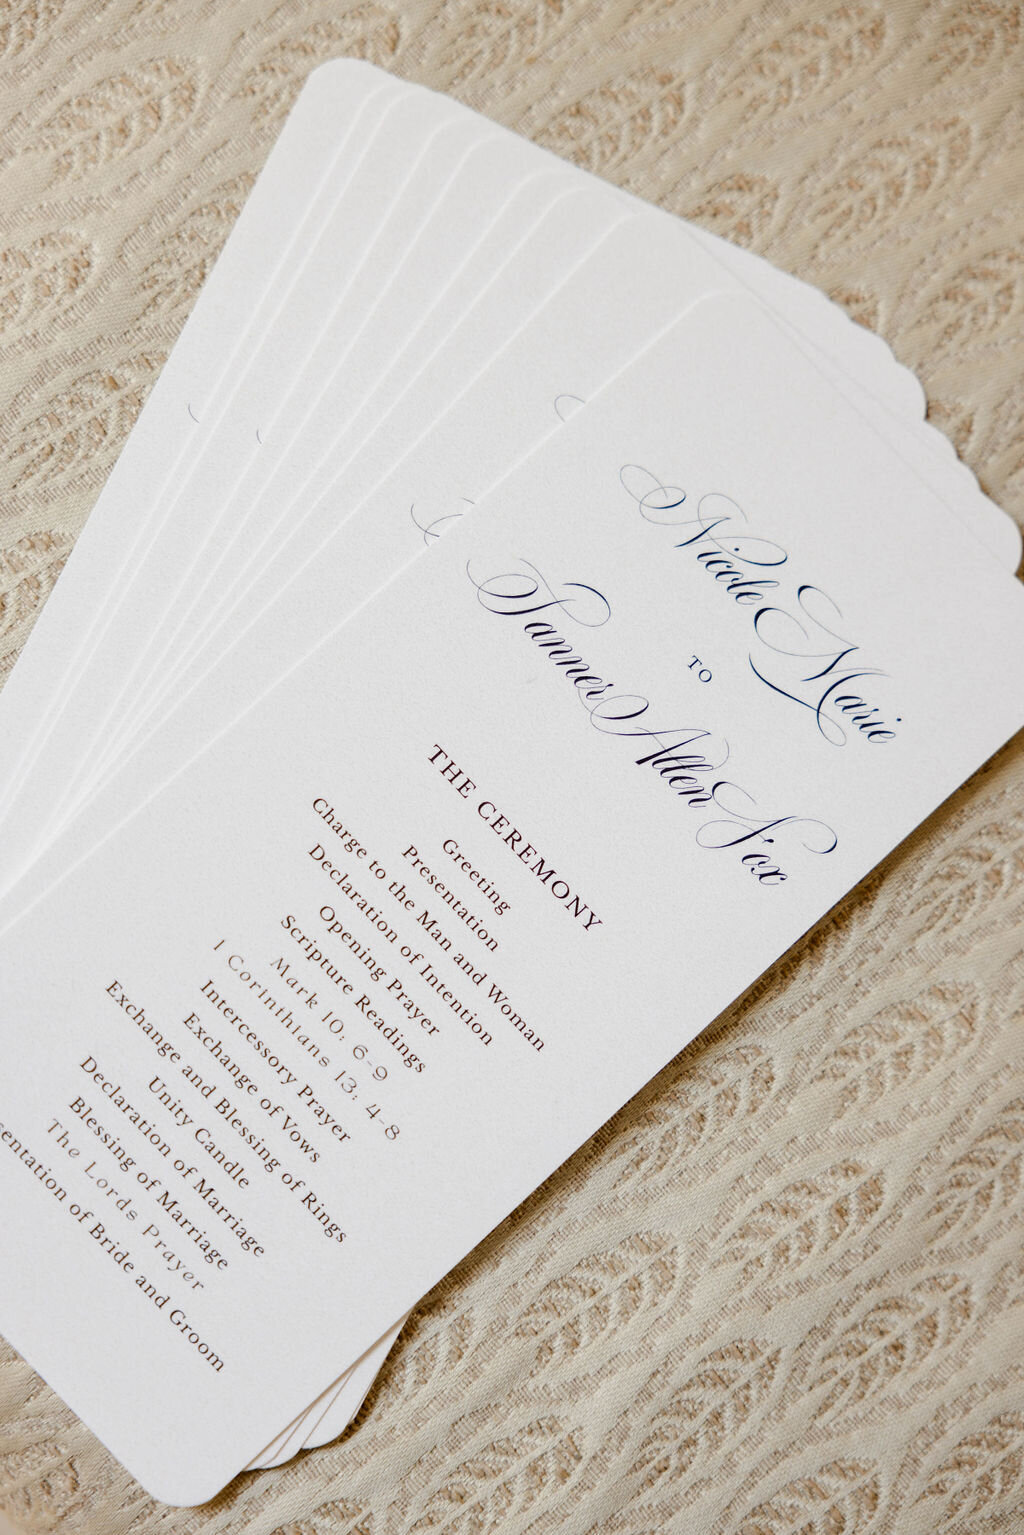 Nicole Marie
TO
Tanner Allen Fox
THE CEREMONY
Greeting
Presentation
Charge to the Man and Woman
Declaration of Intention
Opening Prayer
Scripture Readings
Mark 10: 6-9
1 Corinthians 13: 4-8
Intercessory Prayer
Exchange of Vows
Exchange and Blessing of Rings
Unity Candle
Declaration of Marriage
Blessing of Marriage
The Lords Prayer
sentation of Bride and Groom